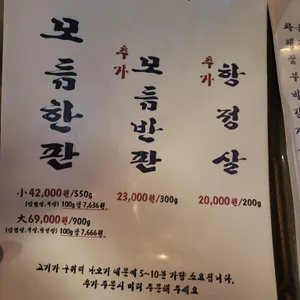 모듬한판
小 42,000원/550g
100g 당 7,636원
大 69,000원/900g
100g 당 7,666원
추가
모듬반판
23,000원/300g
추가
항정살
20,000원/200g
고기가 구워져 나오기 때문에 5~10분 가량 소요됩니다.
추가 주문시 미리 주문해 주세요.